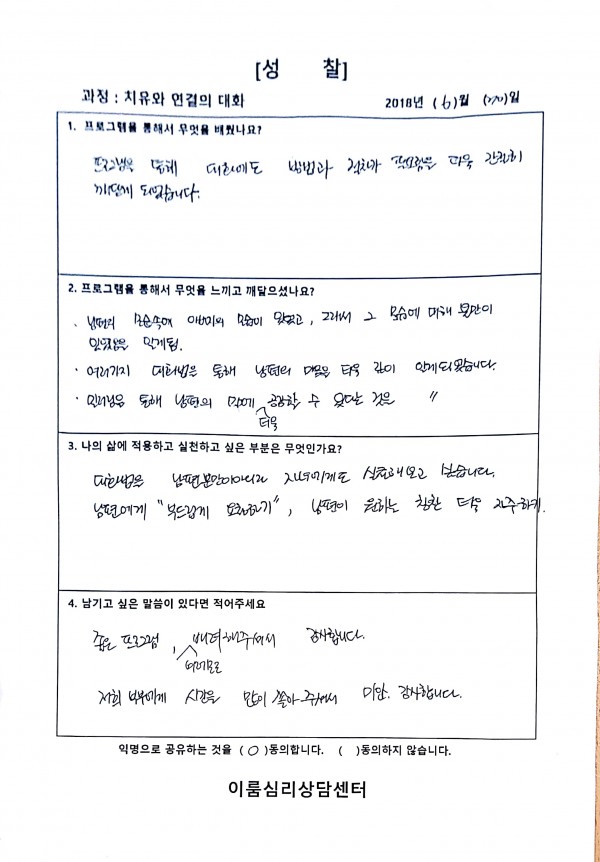 [성 찰]
과정 : 치유와 연결의 대화 2018년 (6)월 (20)일
1. 프로그램을 통해서 무엇을 배웠나요?
프로그램을 통해 대화에도 방법과 절차가 필요함을 더욱 간절히
깨닫게 되었습니다.
2. 프로그램을 통해서 무엇을 느끼고 깨달으셨나요?
· 남편의 모습속에 아버지의 모습이 있었고, 그래서 그 모습에 대해 불만이
있었음을 알게됨.
· 여러가지 대화법을 통해 남편의 마음을 더욱 깊이 알게되었습니다.
· 대화법을 통해 남편의 말에 더욱 공감할 수 있다는 것을 〃
3. 나의 삶에 적용하고 실천하고 싶은 부분은 무엇인가요?
대화법을 남편분만아니라 자녀에게도 실천해보고 싶습니다.
남편에게 "부드럽게 요청하기", 남편이 원하는 칭찬 더욱 자주하기.
4. 남기고 싶은 말씀이 있다면 적어주세요
좋은 프로그램, 여러모로 배려해주셔서 감사합니다.
저희 부부에게 시간을 많이 쏟아주셔서 미안. 감사합니다.
익명으로 공유하는 것을 (O)동의합니다. ( )동의하지 않습니다.
이룸심리상담센터